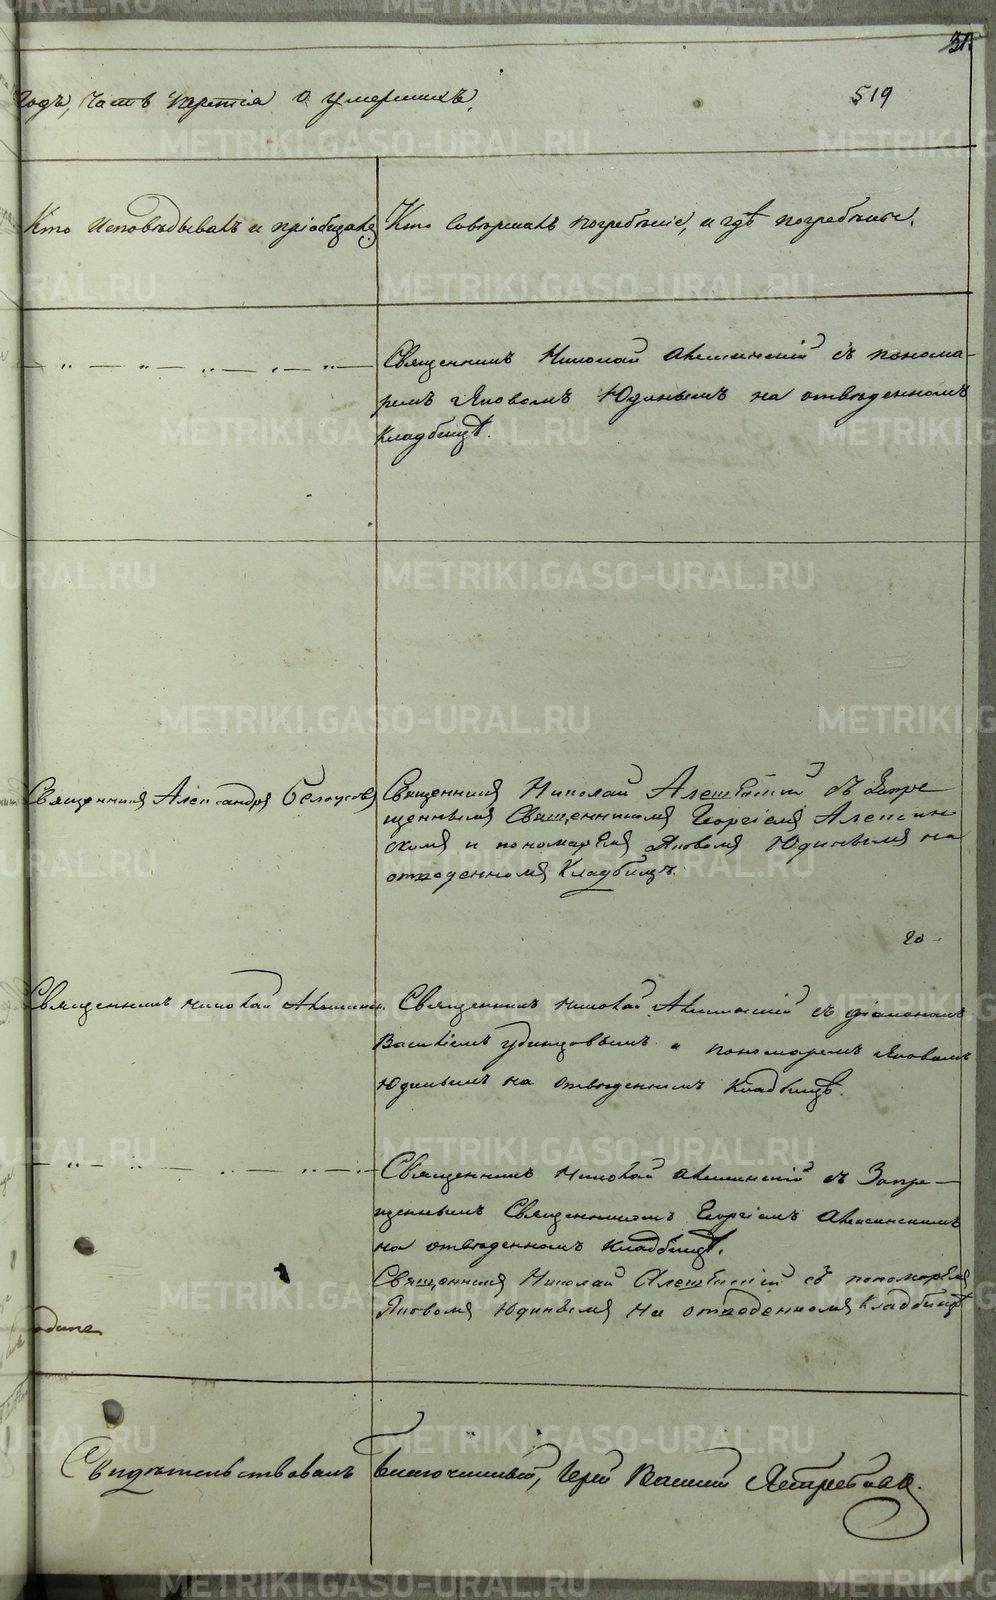 31.
годъ, часть третія о умершихъ.
519
Кто исповѣдывалъ и пріобщалъ
Кто совершалъ погребеніе, и гдѣ погребены.
Священникъ Николай Алешинскій съ понома-
ремъ Яковомъ Юдинымъ на отведенномъ
кладбищѣ.
Священникъ Александръ
Священникъ Николай съ Запре
щеннымъ Священникомъ Георгіемъ
и пономаремъ Яковомъ Юдинымъ на
отведенномъ Кладбищѣ.
20
Священникъ Николай
Священникъ Николай съ діакономъ
Василіемъ Удинцовымъ и пономаремъ Яковомъ
Юдинымъ на отведенномъ кладбищѣ.
Священникъ Николай съ Запре-
щеннымъ Священникомъ Георгіемъ
на отведенномъ кладбищѣ.
Священникъ Николай съ пономаремъ
Яковомъ Юдинымъ на отведенномъ кладбищѣ
Свидѣтельствовалъ Благочинный, Іерей Василій Ястребовъ.
METRIKI.GASO-URAL.RU